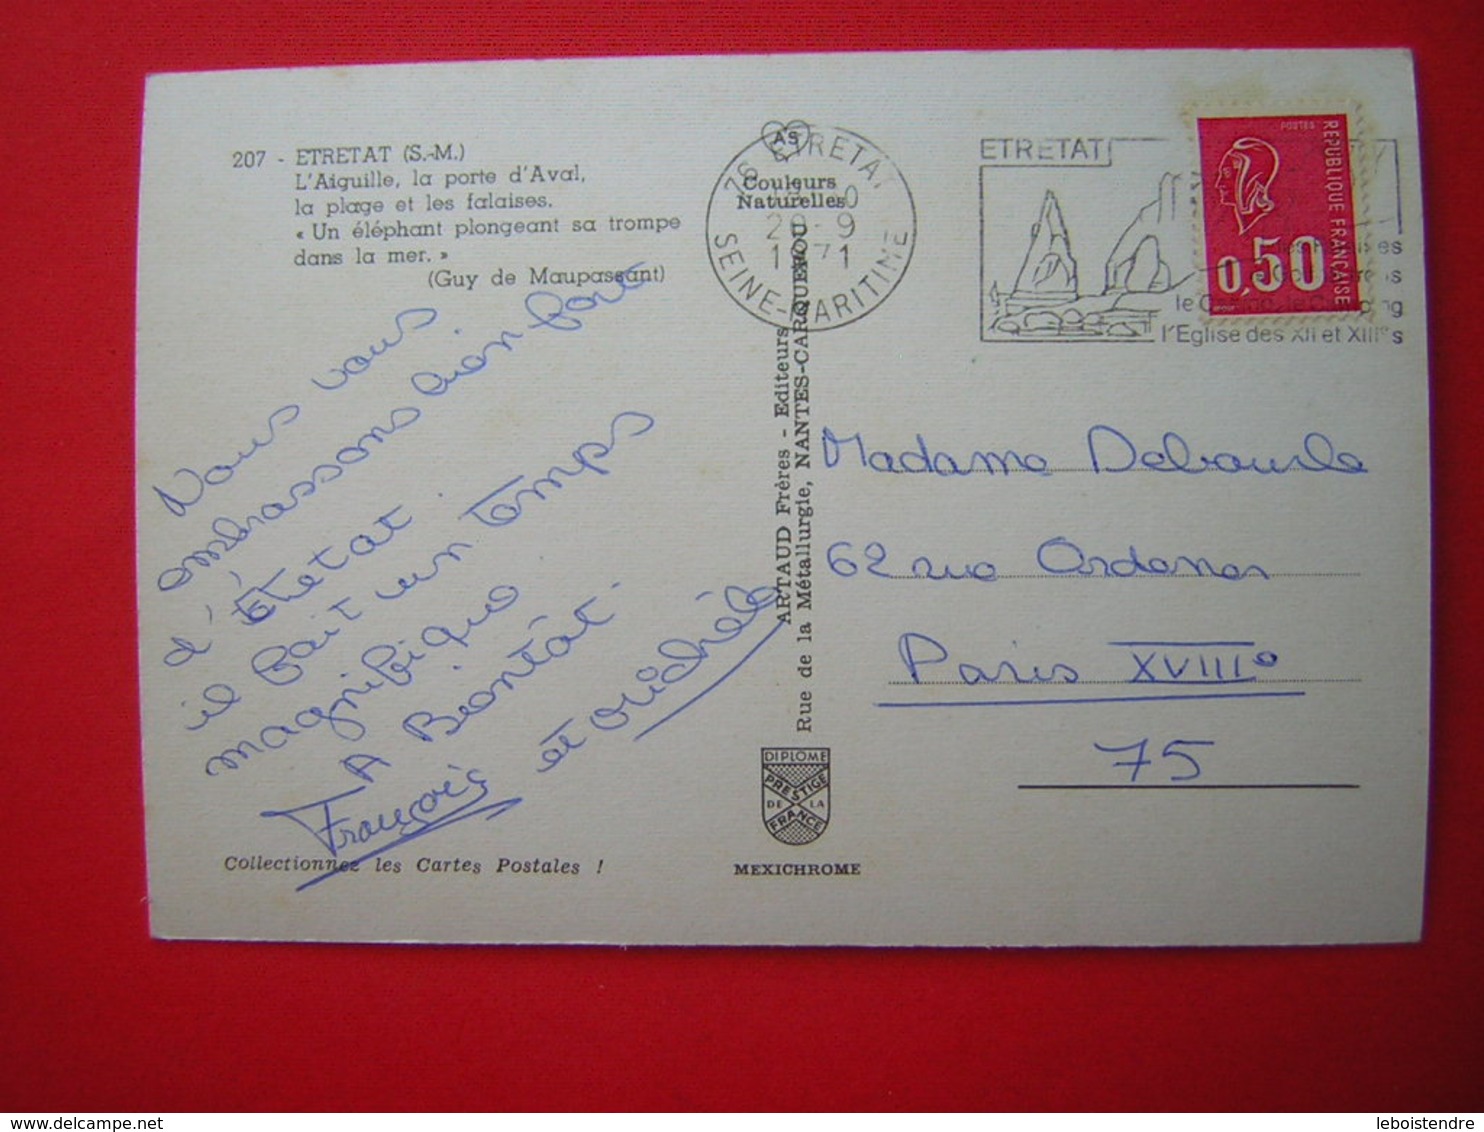 207 - ETRETAT (S.-M.)
L'Aiguille, la porte d'Aval,
la plage et les falaises.
« Un éléphant plongeant sa trompe
dans la mer. »
(Guy de Maupassant)
Nous vous
embrassons bien fort
d'étretat.
il fait un temps
magnifique
A Bientôt.
François et Michèle
Collectionnez les Cartes Postales !
AS
Couleurs
Naturelles
76 ETRETAT
29-9
1971
SEINE-MARITIME
ARTAUD Frères - Editeurs
Rue de la Métallurgie, NANTES-CARQUEFOU
DIPLOME
PRESTIGE
DE LA
FRANCE
MEXICHROME
ETRETAT
l'Eglise des XII et XIIIe s
POSTES
REPUBLIQUE FRANÇAISE
0,50
Madame
62 rue Ordener
Paris XVIIIe
75
leboistendre